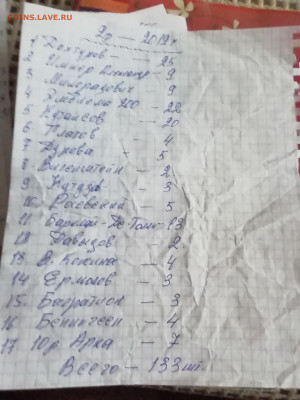 COINS.SU
2р — 2012 г.
1 Дохтуров — 25
2 Импер Александр — 9
3 Милорадович 9
4 Эмблема 200 — 22
5 Кутайсов — 20
6 Платов — 4
7 Дурова — 5
8 Витгенштейн — 2
9 Кутуз — 3
10 Раевский — 5
11 Барклай-Де-Толли — 13
12 Давыдов — 2
13 В. Кожина — 4
14 Ермолов — 3
15 Багратион — 3
16 Бенингсен — 4
17 Юр. Арка — 7
Всего — 133 шт.